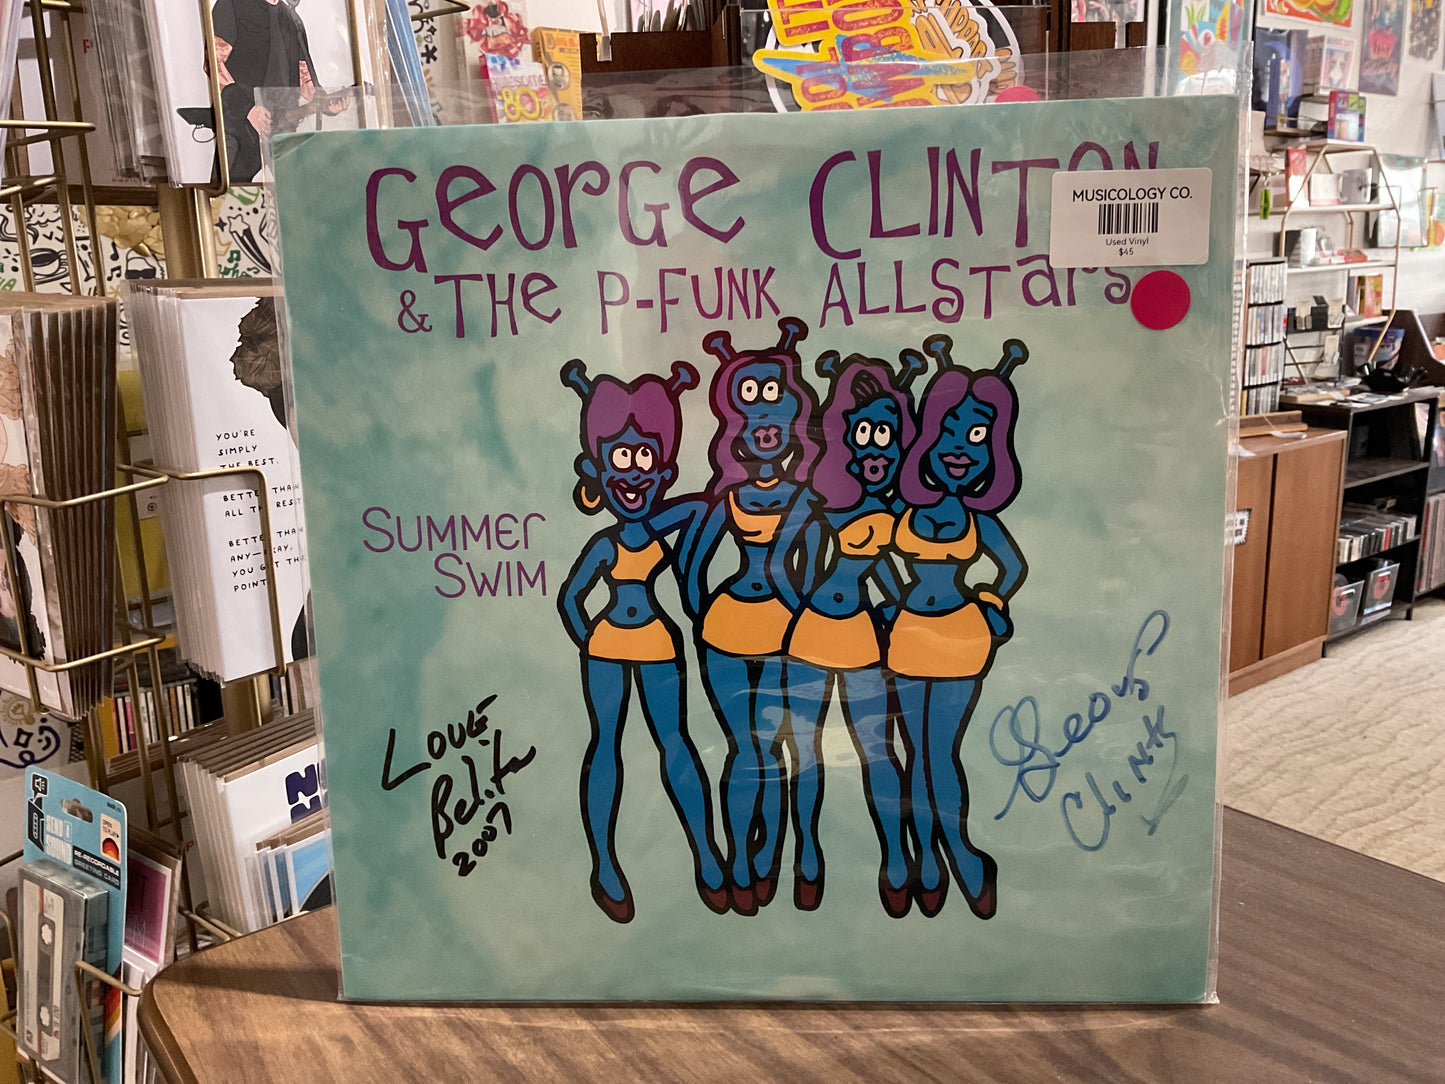 GEORGE CLINTON
& THE P-FUNK ALLSTARS
MUSICOLOGY CO.
Used Vinyl
$45
SUMMER
SWIM
George
Clinton
2007
YOU'RE
SIMPLY
THE BEST.
BETTER THAN
ALL THE REST
BETTER THAN
ANY—
YOU GET THE
POINT
80s
SEND A
SOUND
RE-RECORDABLE
GREETING CARD